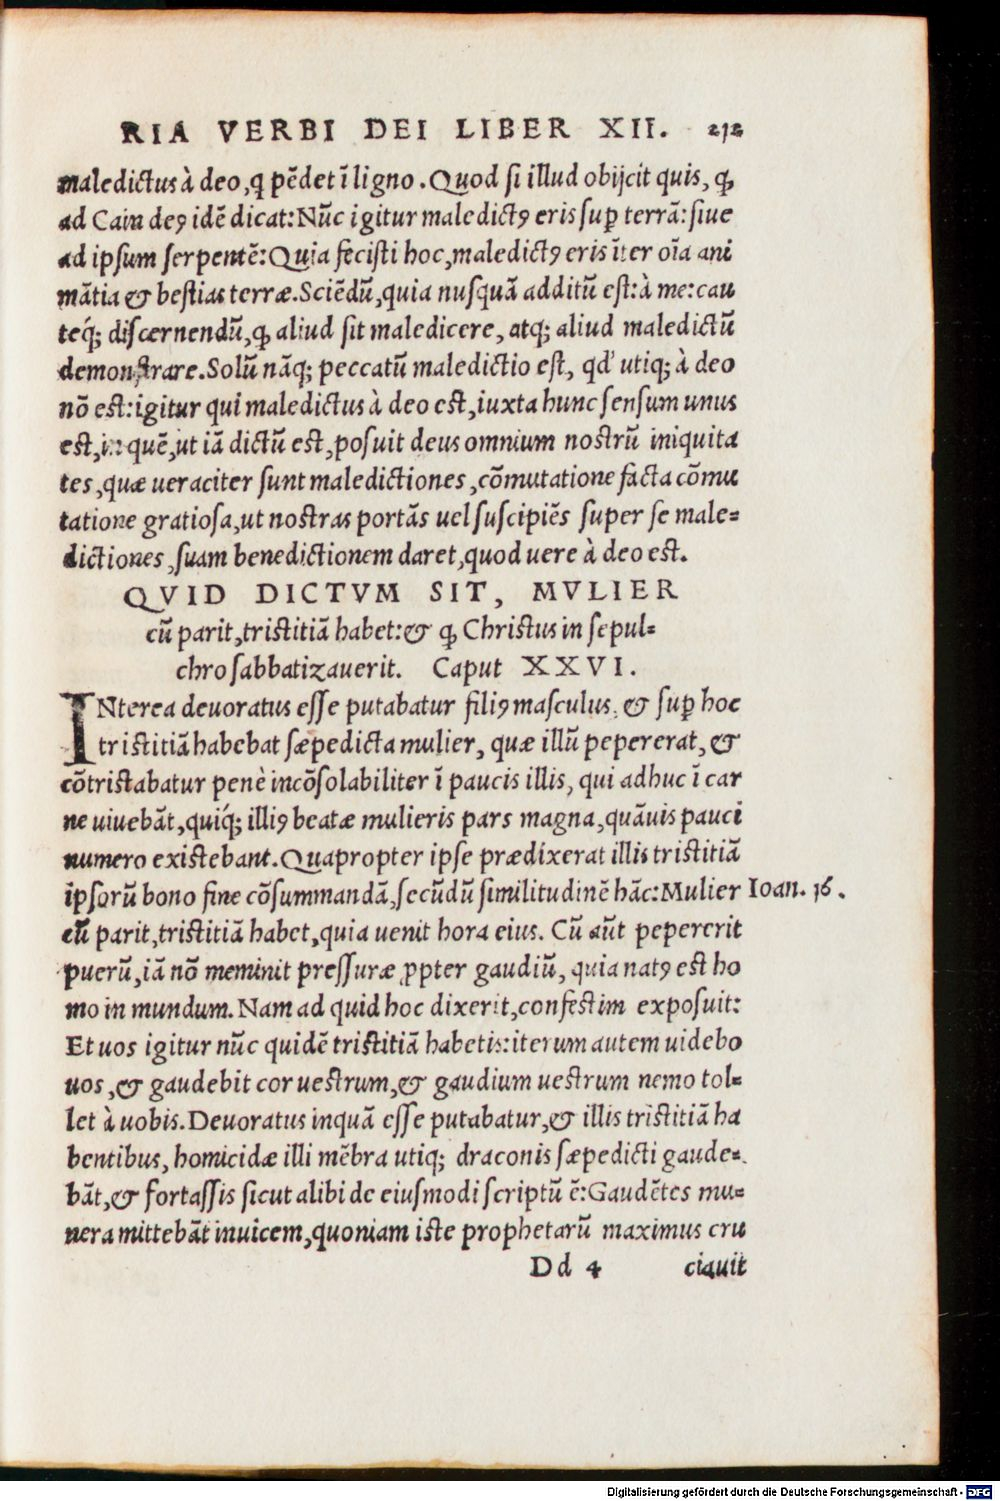 RIA VERBI DEI LIBER XII. 212
maledictus à deo, q pēdet ī ligno. Quod si illud obijcit quis, ꝙ
ad Cain deꝰ idē dicat: Nūc igitur maledictꝰ eris suꝑ terrā: siue
ad ipsum serpentē: Quia fecisti hoc, maledictꝰ eris īter oīa ani
mātia & bestias terræ. Sciēdū, quia nusquā additū est: à me: cau
teq́; discernendū, ꝙ aliud sit maledicere, atq; aliud maledictū
demonstrare. Solū nāq; peccatū maledictio est, qd' utiq; à deo
nō est: igitur qui maledictus à deo est, iuxta hunc sensum unus
est, in quē, ut iā dictū est, posuit deus omnium nostrū iniquita
tes, quæ ueraciter sunt maledictiones, cōmutatione facta cōmu
tatione gratiosa, ut nostras portās uel suscipiēs super se male=
dictiones, suam benedictionem daret, quod uere à deo est.
QVID DICTVM SIT, MVLIER
cū parit, tristitiā habet: & ꝙ Christus in sepul=
chro sabbatizauerit. Caput XXVI.
INterea deuoratus esse putabatur filiꝰ masculus, & suꝑ hoc
tristitiā habebat sæpedicta mulier, quæ illū pepererat, &
cōtristabatur penè incōsolabiliter ī paucis illis, qui adhuc ī car
ne uiuebāt, quiq́; illiꝰ beatæ mulieris pars magna, quāuis pauci
numero existebant. Quapropter ipse prædixerat illis tristitiā
ipsorū bono fine cōsummandā, secūdū similitudinē hāc: Mulier Ioan. 16.
cū parit, tristitiā habet, quia uenit hora eius. Cū aūt pepererit
puerū, iā nō meminit pressuræ ꝓpter gaudiū, quia natꝰ est ho
mo in mundum. Nam ad quid hoc dixerit, confestim exposuit:
Et uos igitur nūc quidē tristitiā habetis: iterum autem uidebo
uos, & gaudebit cor uestrum, & gaudium uestrum nemo tol=
let à uobis. Deuoratus inquā esse putabatur, & illis tristitiā ha
bentibus, homicidæ illi mēbra utiq; draconis sæpedicti gaude=
bāt, & fortassis sicut alibi de eiusmodi scriptū ē: Gaudētes mu=
nera mittebāt inuicem, quoniam iste prophetarū maximus cru
Dd 4 ciauit
Digitalisierung gefördert durch die Deutsche Forschungsgemeinschaft - DFG